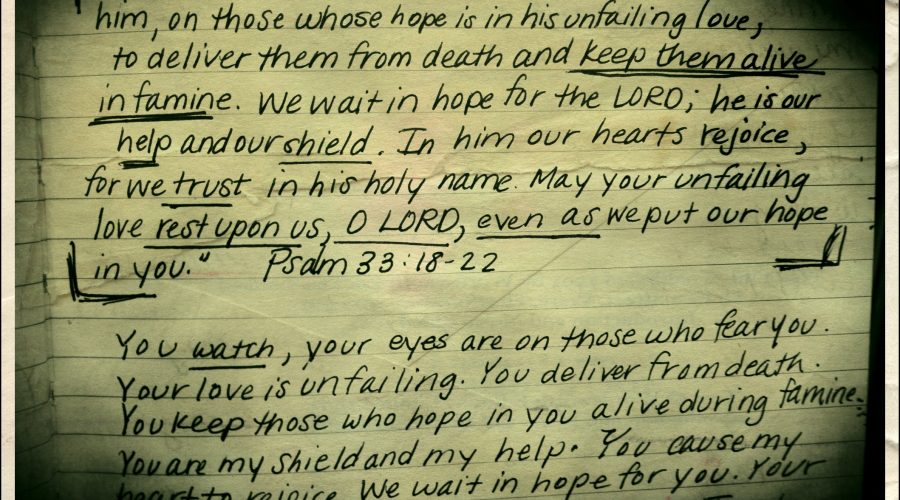 him, on those whose hope is in his unfailing love,
to deliver them from death and keep them alive
in famine. We wait in hope for the LORD; he is our
help and our shield. In him our hearts rejoice,
for we trust in his holy name. May your unfailing
love rest upon us, O LORD, even as we put our hope
in you." Psalm 33:18-22
You watch, your eyes are on those who fear you.
Your love is unfailing. You deliver from death.
You keep those who hope in you alive during famine.
You are my shield and my help. You cause my
heart to rejoice. We wait in hope for you. Your